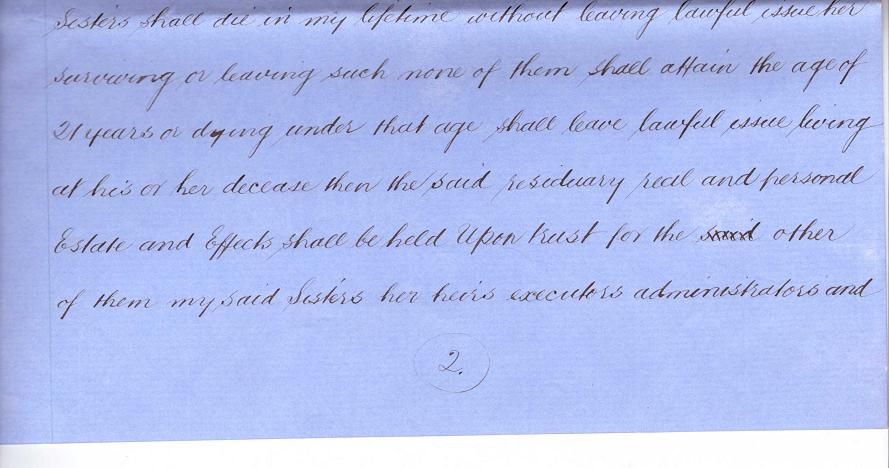 Sisters shall die in my lifetime without leaving lawful issue her
surviving or leaving such none of them shall attain the age of
21 years or dying under that age shall leave lawful issue living
at his or her decease then the said residuary real and personal
Estate and Effects shall be held Upon trust for the said other
of them my said Sisters her heirs executors administrators and
2.